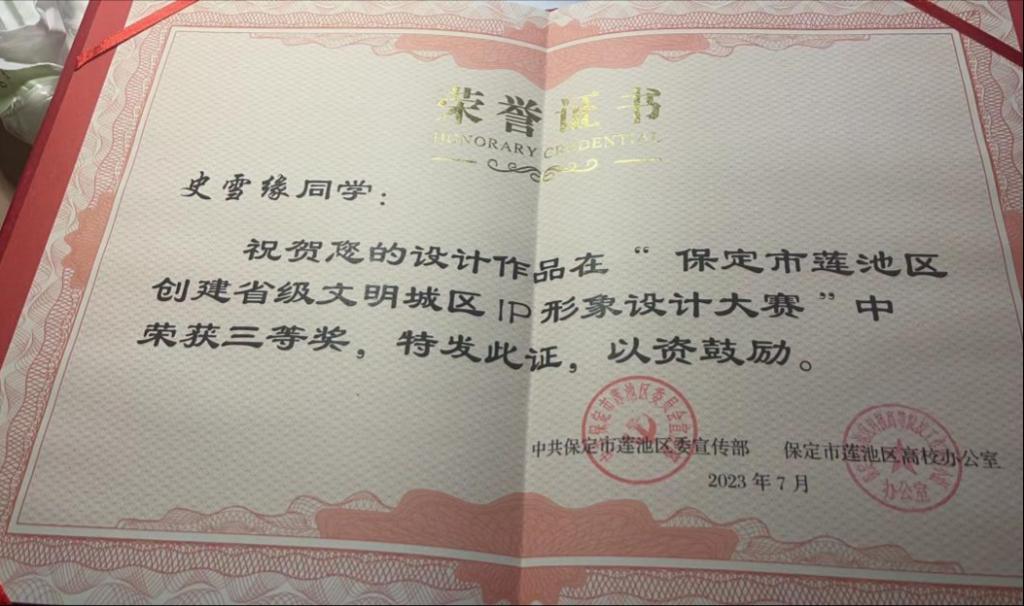 荣誉证书
HONORARY CREDENTIAL
史雪缘同学：
祝贺您的设计作品在“保定市莲池区
创建省级文明城区IP形象设计大赛”中
荣获三等奖，特发此证，以资鼓励。
中共保定市莲池区委宣传部 保定市莲池区高校办公室
2023年7月
办公室